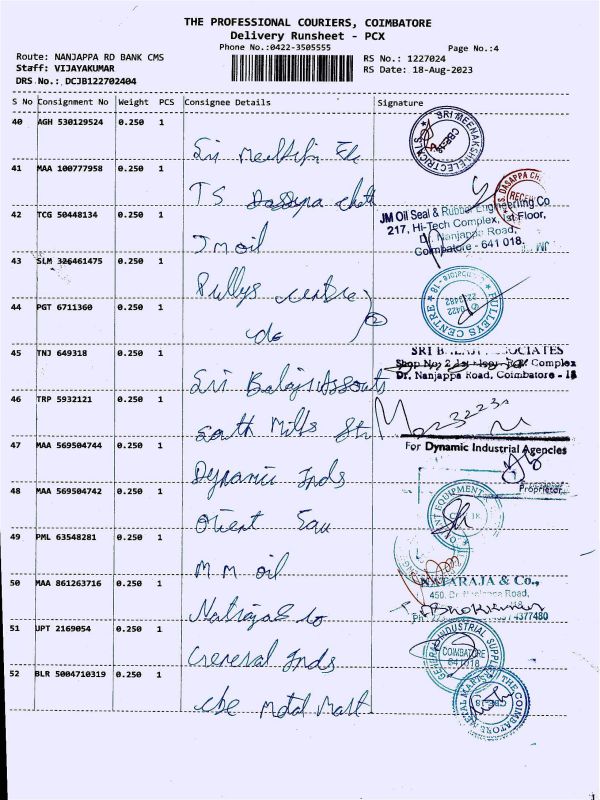 THE PROFESSIONAL COURIERS, COIMBATORE
Delivery Runsheet - PCX
Phone No.:0422-3505555
Page No.:4
Route: NANJAPPA RD BANK CMS
RS No.: 1227024
Staff: VIJAYAKUMAR
RS Date: 18-Aug-2023
DRS No.: DCJB122702404
S No Consignment No Weight PCS Consignee Details Signature
40 AGH 530129524 0.250 1
SRI MEENAKSHI ELECTRICALS
CBE-18
Sri
41 MAA 100777958 1 0.250 1
TS Dasappa chetti
T.S. DASAPPA CH
42 TCG 50448134 0.250 1
JM Oil Seal & Rubber Engineering Co
217, Hi-Tech Complex, 1st Floor,
Dr. Nanjappa Road,
Coimbatore - 641 018.
JM oil
43 SLM 326461475 0.250 1
Pullys centre
44 PGT 6711360 0.250 1
PULLEYS CENTRE
do
2
45 TNJ 649318 0.250 1
SRI B
Shop No
Complex
Dr. Nanjappa Road, Coimbatore - 18
Sri Balaji Assoats
46 TRP 5932121 0.250 1
South Mills
47 MAA 569504744 0.250 1
For Dynamic Industrial Agencies
Proprietor
Dynamic Inds
48 MAA 569504742 0.250 1
EQUIPMENT
Orient
49 PML 63548281 0.250 1
M M oil
50 MAA 861263716 0.250 1
NATARAJA & Co.,
450, Dr. Nanjappa Road,
Natraja & co
51 UPT 2169054 0.250 1
GENERAL INDUSTRIAL SUPPLIE
COIMBATORE
641018
General Inds
52 BLR 5004710319 0.250 1
THE COIMBATORE METAL MART
CBE-18
cbe Metal Mart